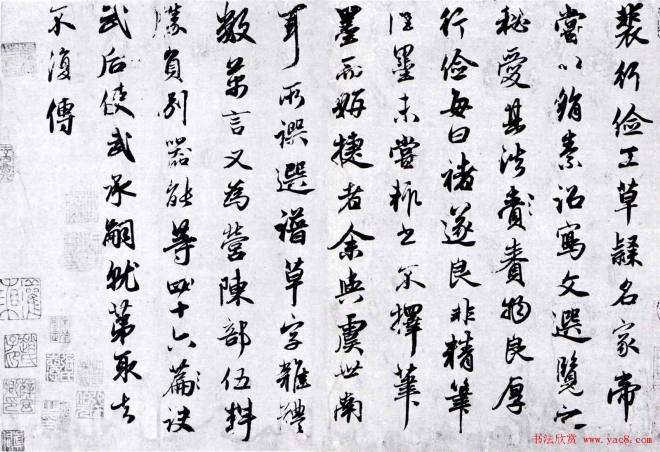 裴行儉工草隸名家帝
嘗以絹素詔寫文選覽之
秘愛其法賚賚物良厚
行儉每曰褚遂良非精筆
佳墨未嘗輒書不擇筆
墨而妍捷者余與虞世南
耳所譔選譜草字雜體
數萬言又為營陳部伍料
勝負別器能等四十六篇訣
武后使武承嗣就第取去
不復傳
书法欣赏 www.yac8.com